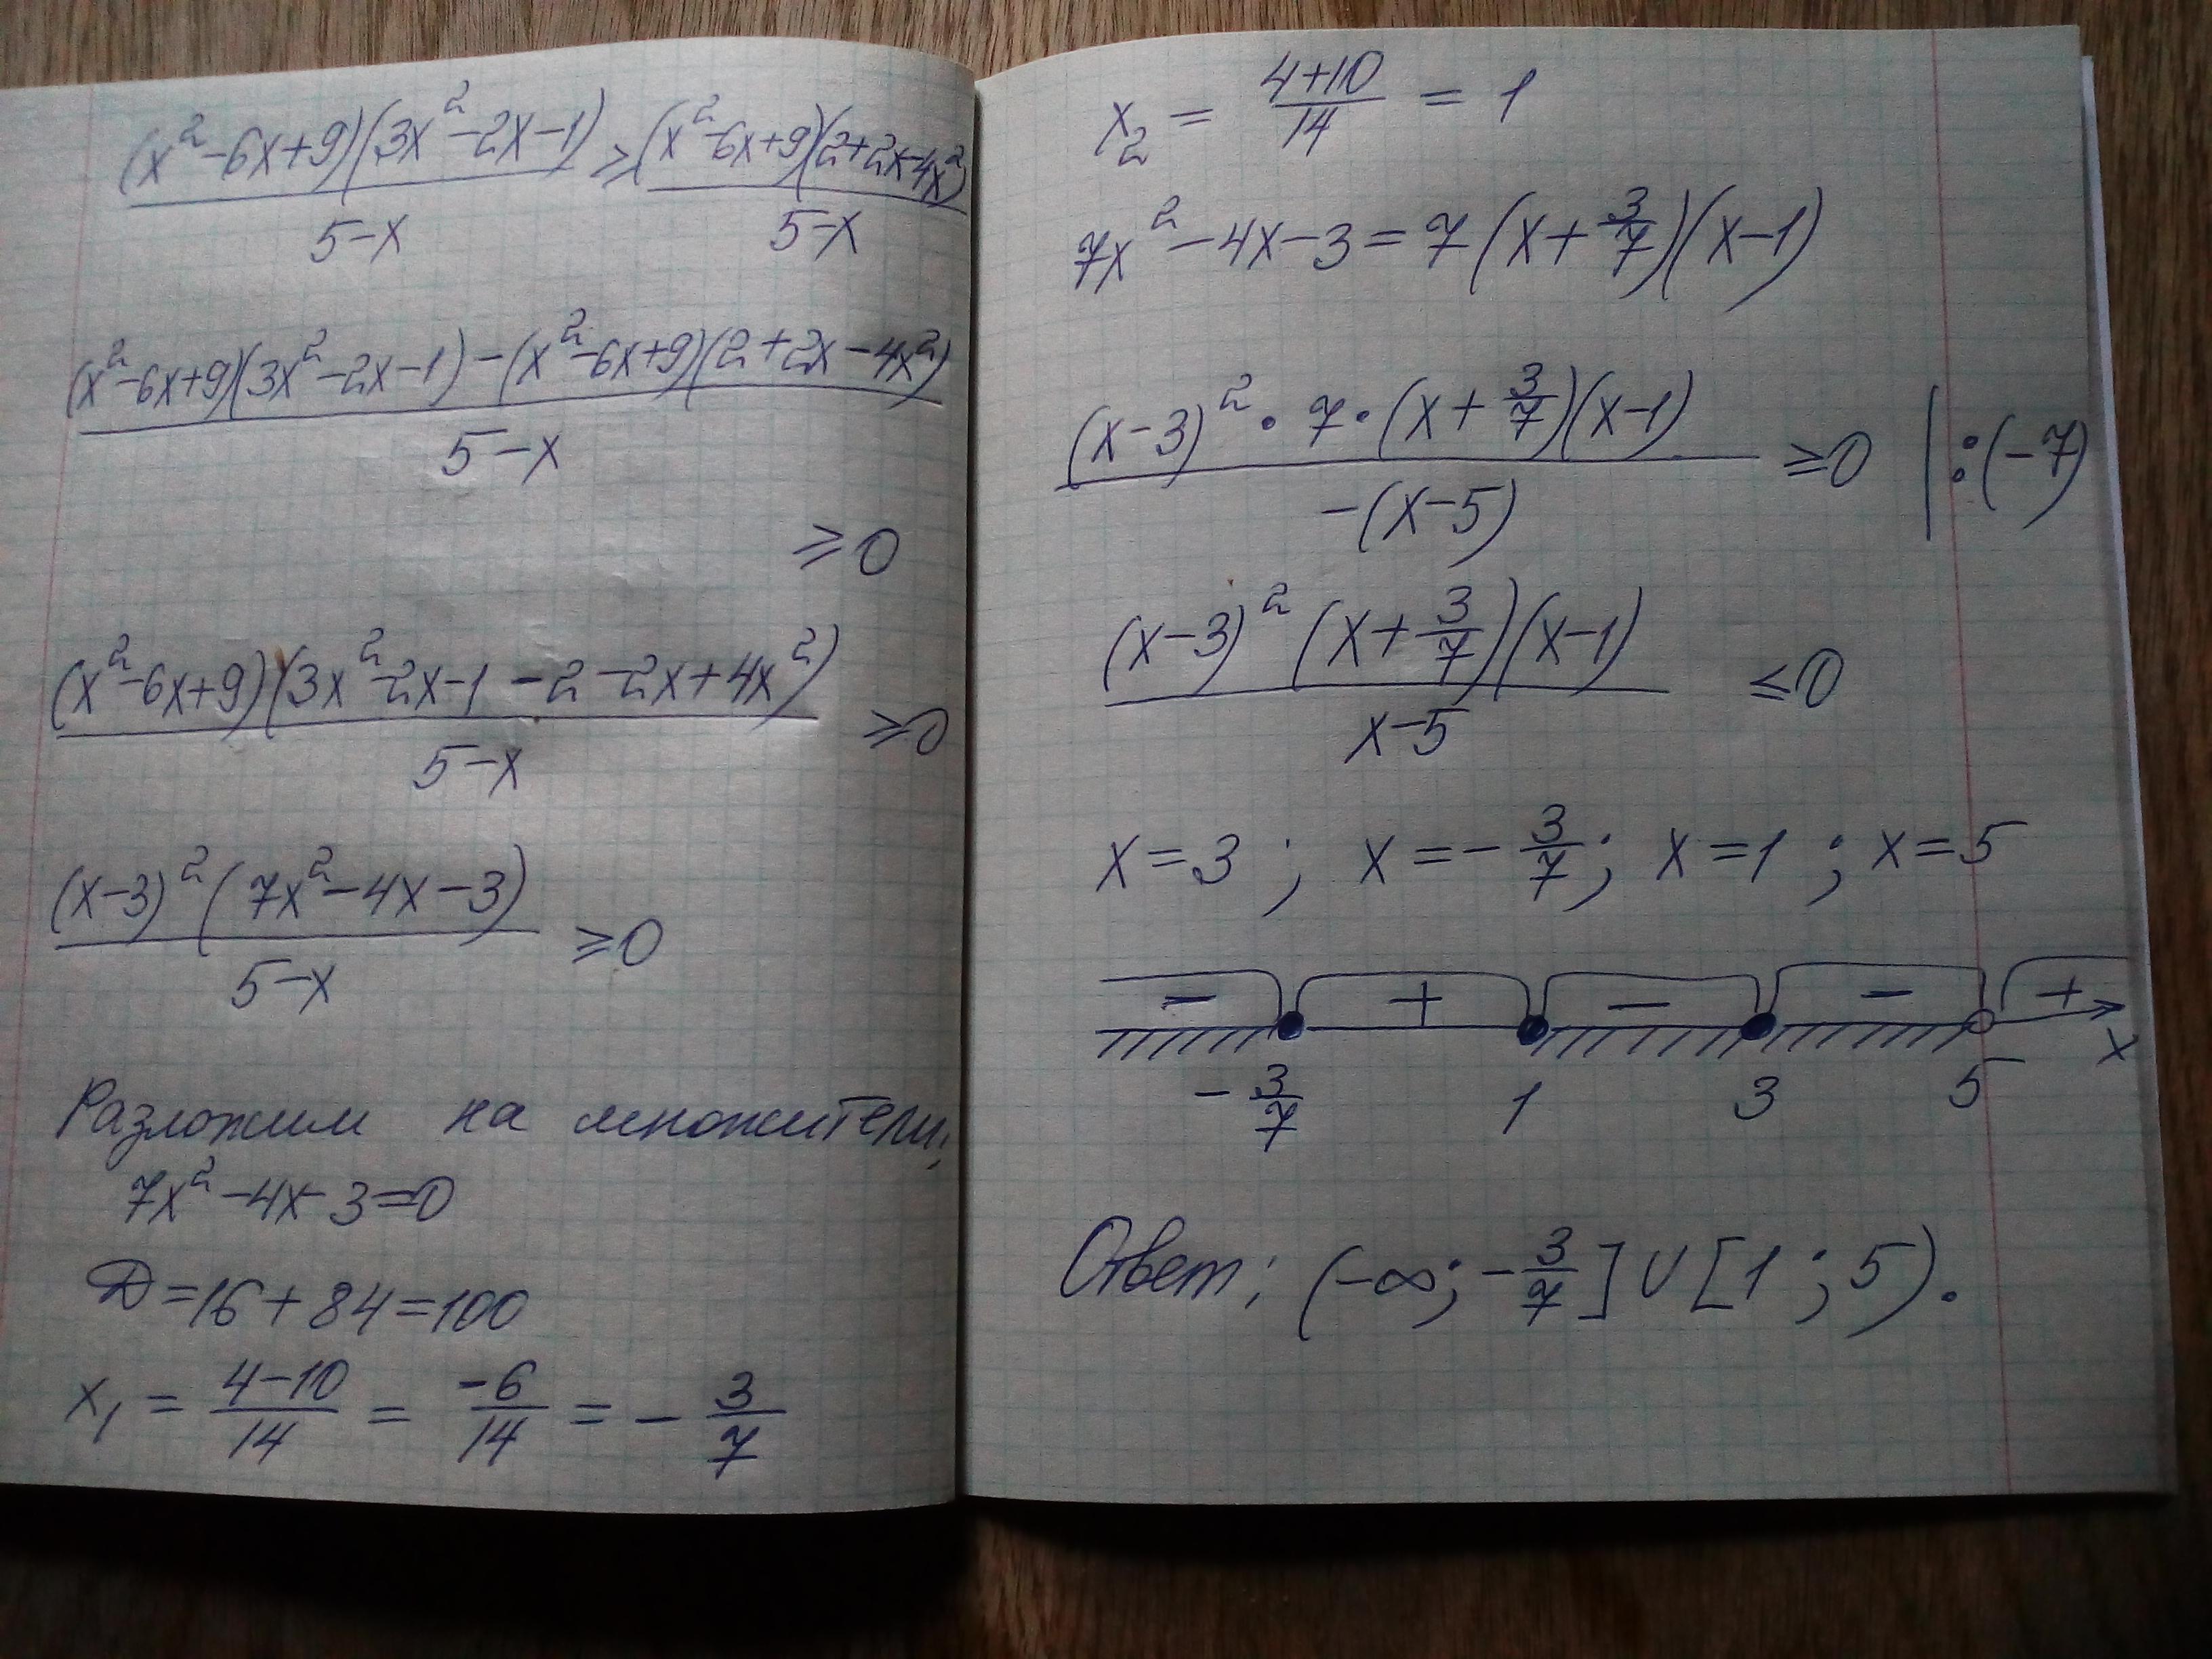 (x²-6x+9)(3x²-2x-1)/(5-x) ≥ (x²-6x+9)(2+2x-4x²)/(5-x)
((x²-6x+9)(3x²-2x-1)-(x²-6x+9)(2+2x-4x²))/(5-x)
≥0
(x²-6x+9)(3x²-2x-1-2-2x+4x²)/(5-x) ≥0
(x-3)²(7x²-4x-3)/(5-x) ≥0
Разложим на множители;
7x²-4x-3=0
D=16+84=100
x₁ = (4-10)/14 = -6/14 = -3/7
x₂ = (4+10)/14 = 1
7x²-4x-3=7(x+3/7)(x-1)
(x-3)²·7·(x+3/7)(x-1)/(-(x-5)) ≥0 |:(-7)
(x-3)²(x+3/7)(x-1)/(x-5) ≤0
x=3; x=-3/7; x=1; x=5
- + - - +
x
-3/7 1 3 5
Ответ; (-∞;-3/7]∪[1;5).